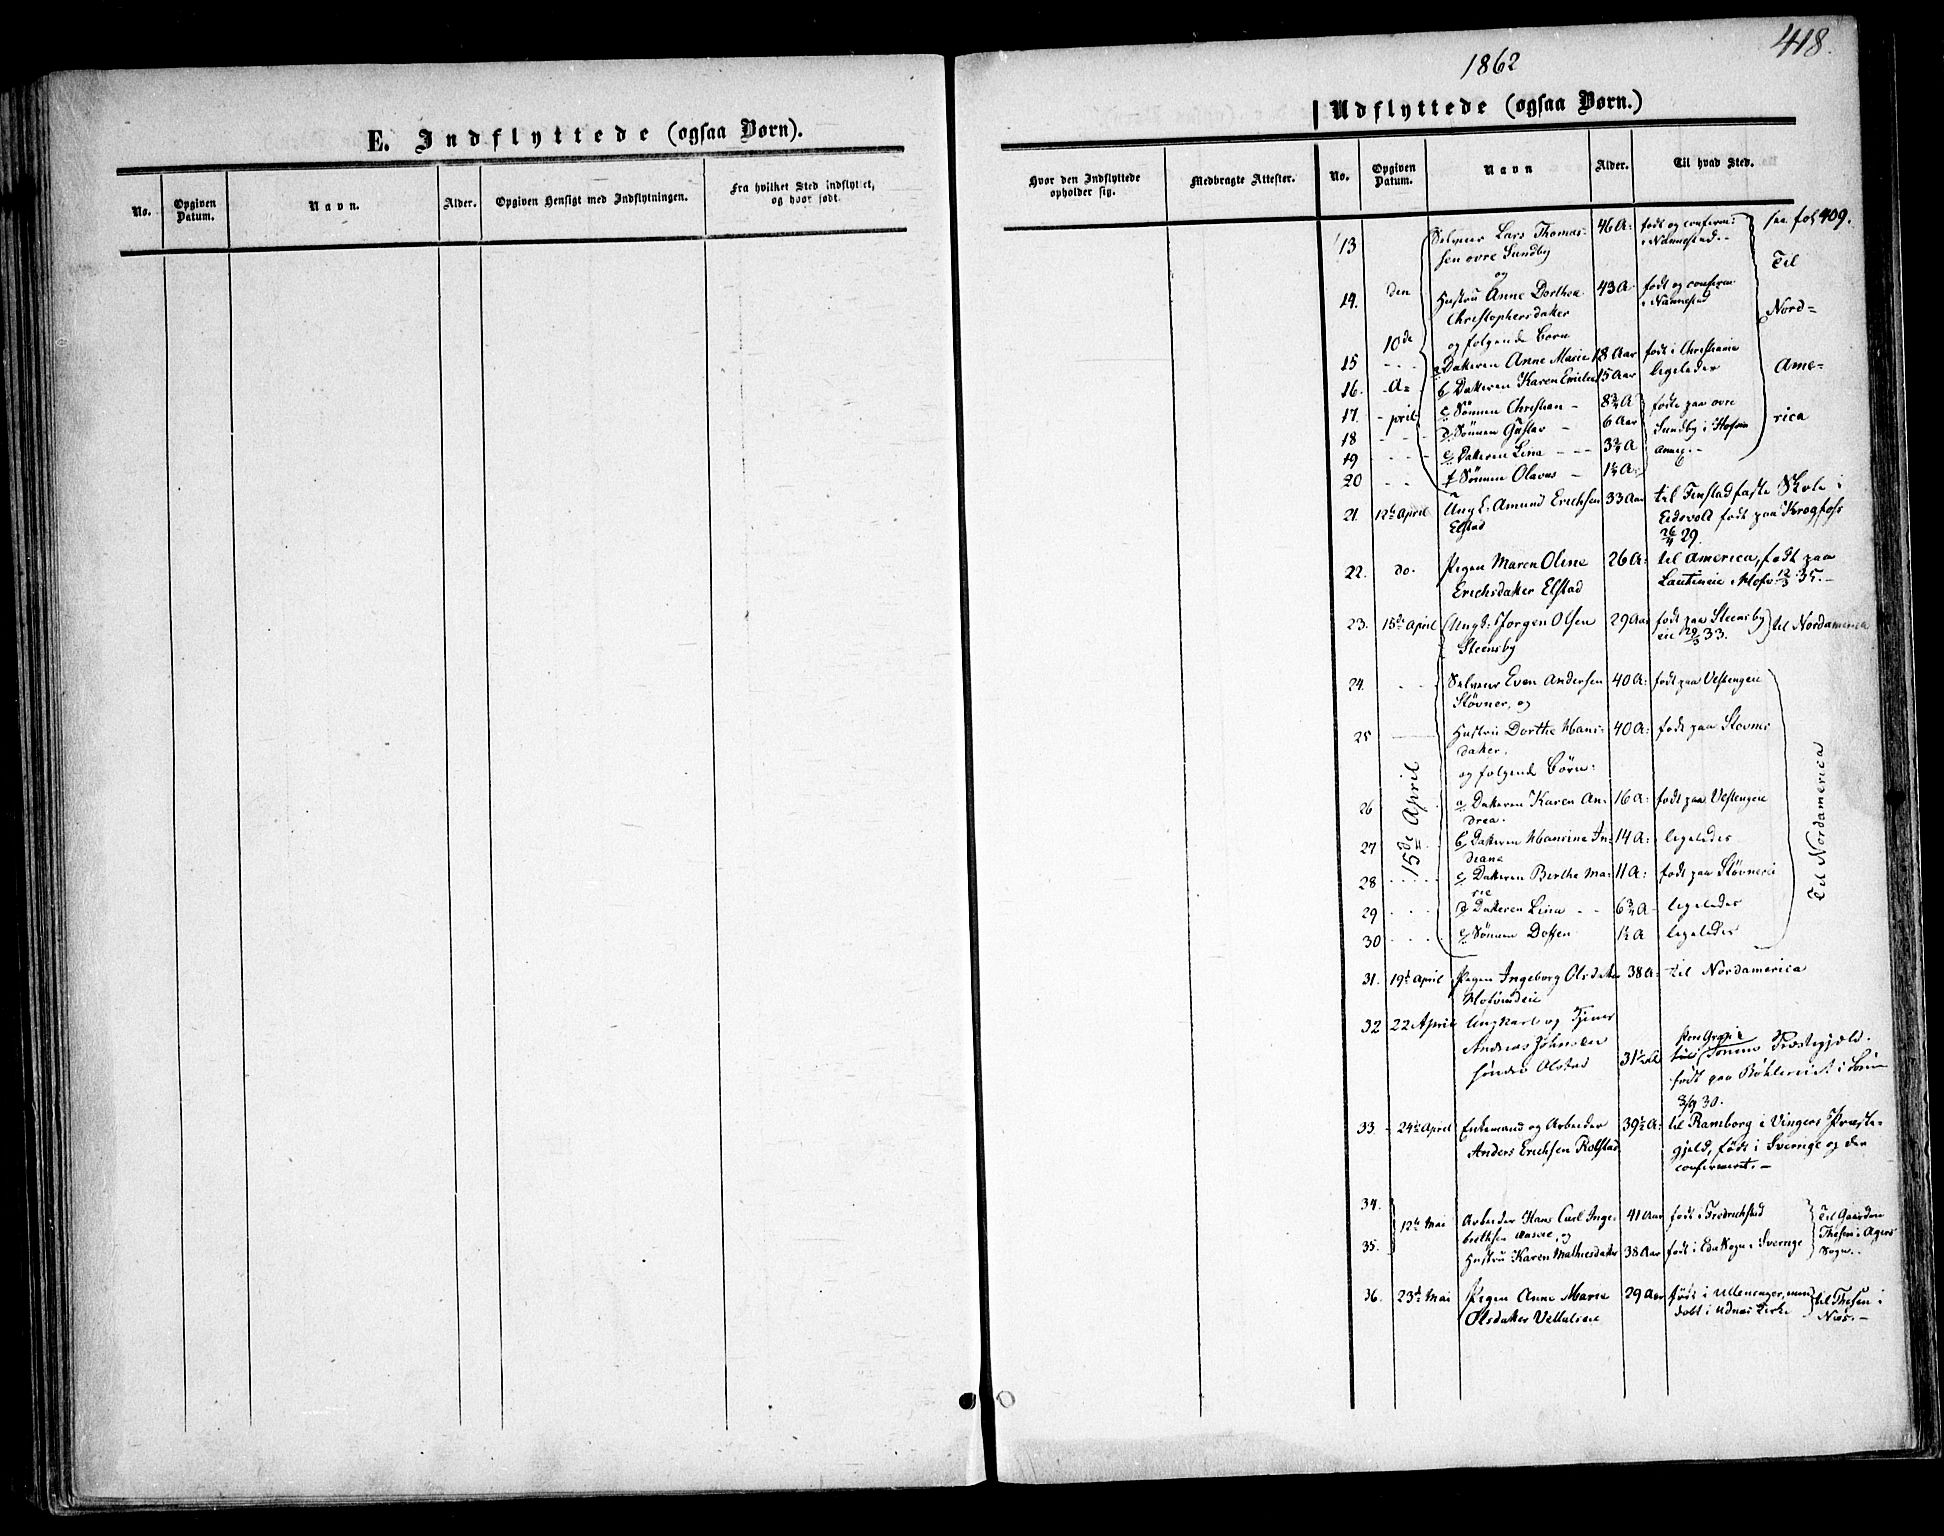 418.
1862
E. Indflyttede (ogsaa Børn).
Udflyttede (ogsaa Børn.)
No. Opgiven Datum. Navn. Alder. Opgiven Hensigt med Indflytningen. Fra hvilket Sted indflyttet, og hvor født.
Hvor den Indflyttede opholder sig. Medbragte Attester. No. Opgiven Datum. Navn Alder. Til hvad Sted.
13 Selveier Lars Thomas- 46 A: født og conferm: see fol 409.
sen øvre Sundby i Nannestad.-
og
14. den Hustru Anne Dorthea 43 A. født og conferm
Christophersdatter i Nannestad
10de og følgende Børn
15 a Datteren Anne Marie 18 Aar født i Christiania
16. A= b Datteren Karen Emilie 15 Aar ligeledes
17. pril c Sønnen Christian 8 3/4 A født paa øvre
18 d Sønnen Gustav 6 Aar Sundby i
19 e Datteren Lina 3 3/4 A Annex.-
20 f Sønnen Olavus 1 1/2 A.
Til Nord= Ame= rica
21. 12te April Ungk: Amund Erichsen 33 Aar til Finstad faste Skole i
Elstad Eidsvold født paa Krogfoss
26/4 29.
22. do. Pigen Maren Oline 26 A: til America, født paa
Erichsdatter Elstad 12/3 35.-
23. 15de April Ungk: Jørgen Olsen 29 Aar født paa Steensby til Nordamerica
Steensby eie 29/5 33.
24. Selveier Even Andersen 40 A: født paa Vestengeie
Støvner, og
25 Hustru Dorthe Hans- 40 A: født paa Støvner
datter,
og følgende Børn:
15de April
26 a Datteren Karen An- 16 A: født paa Vestengeie
drea.
27 b Datteren Hansine In- 14 A: ligeledes
diane
28 c Datteren Berthe Ma- 11 A: født paa Støvnerei
rie
29 d Datteren Lina 6 3/4 A ligeledes
30 e Sønnen Doffen 1 1/2 A ligeledes
Til Nordamerica
31. 19de April Pigen Ingeborg Olsdatter 38 A: til Nordamerica
Holvindeie
32 22 April Ungkarl og Tjener
Andreas Johnsen 31 1/2 A Præstegjæld.
søndre Olstad født paa i
3/9 30.
33. 24de April Enkemand og Arbeider 39 1/2 A: til Ramborg i Vingers Præste-
Anders Erichsen Rolstad gjeld, født i Sverrige og der
confirmeret.-
34. 12te Mai Arbeider Hans Carl Inge- 41 Aar født i Fredrichstad Til Gaarden
brethsen og Thesen i Agers
35. Hustru Karen Mathiesdatter 38 Aar født i Eda Sogn i Sverrige Sogn.-
36. 23de Mai Pigen Anne Marie 29 Aar født i Ullensager, men til Thesen i
Olsdatter døbt i Udnæs Kirke Næs.-